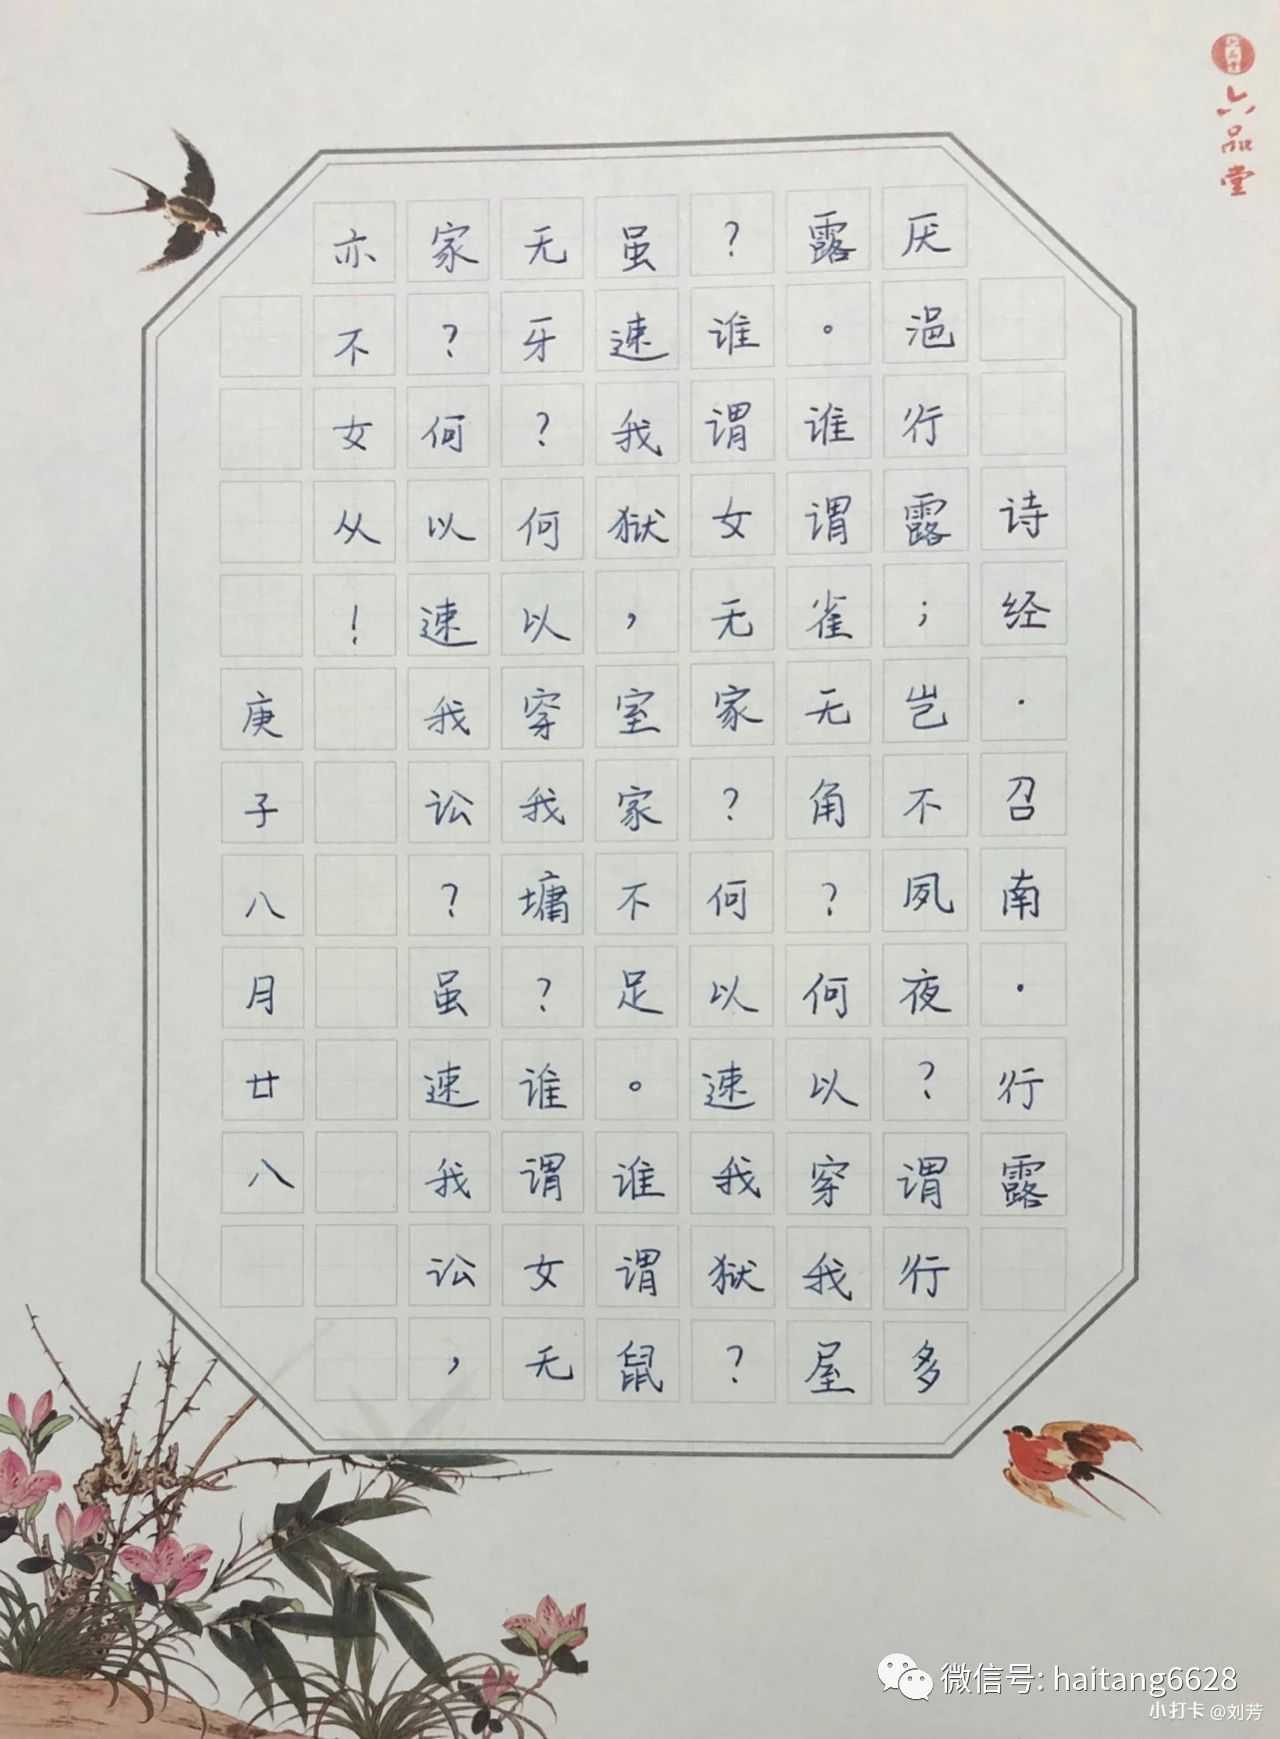 六品堂
诗经·召南·行露
厌浥行露；岂不夙夜？谓行多
露。谁谓雀无角？何以穿我屋
？谁谓女无家？何以速我狱？
虽速我狱，室家不足。谁谓鼠
无牙？何以穿我墉？谁谓女无
家？何以速我讼？虽速我讼，
亦不女从！
庚子八月廿八
微信号: haitang6628
小打卡 @刘芳